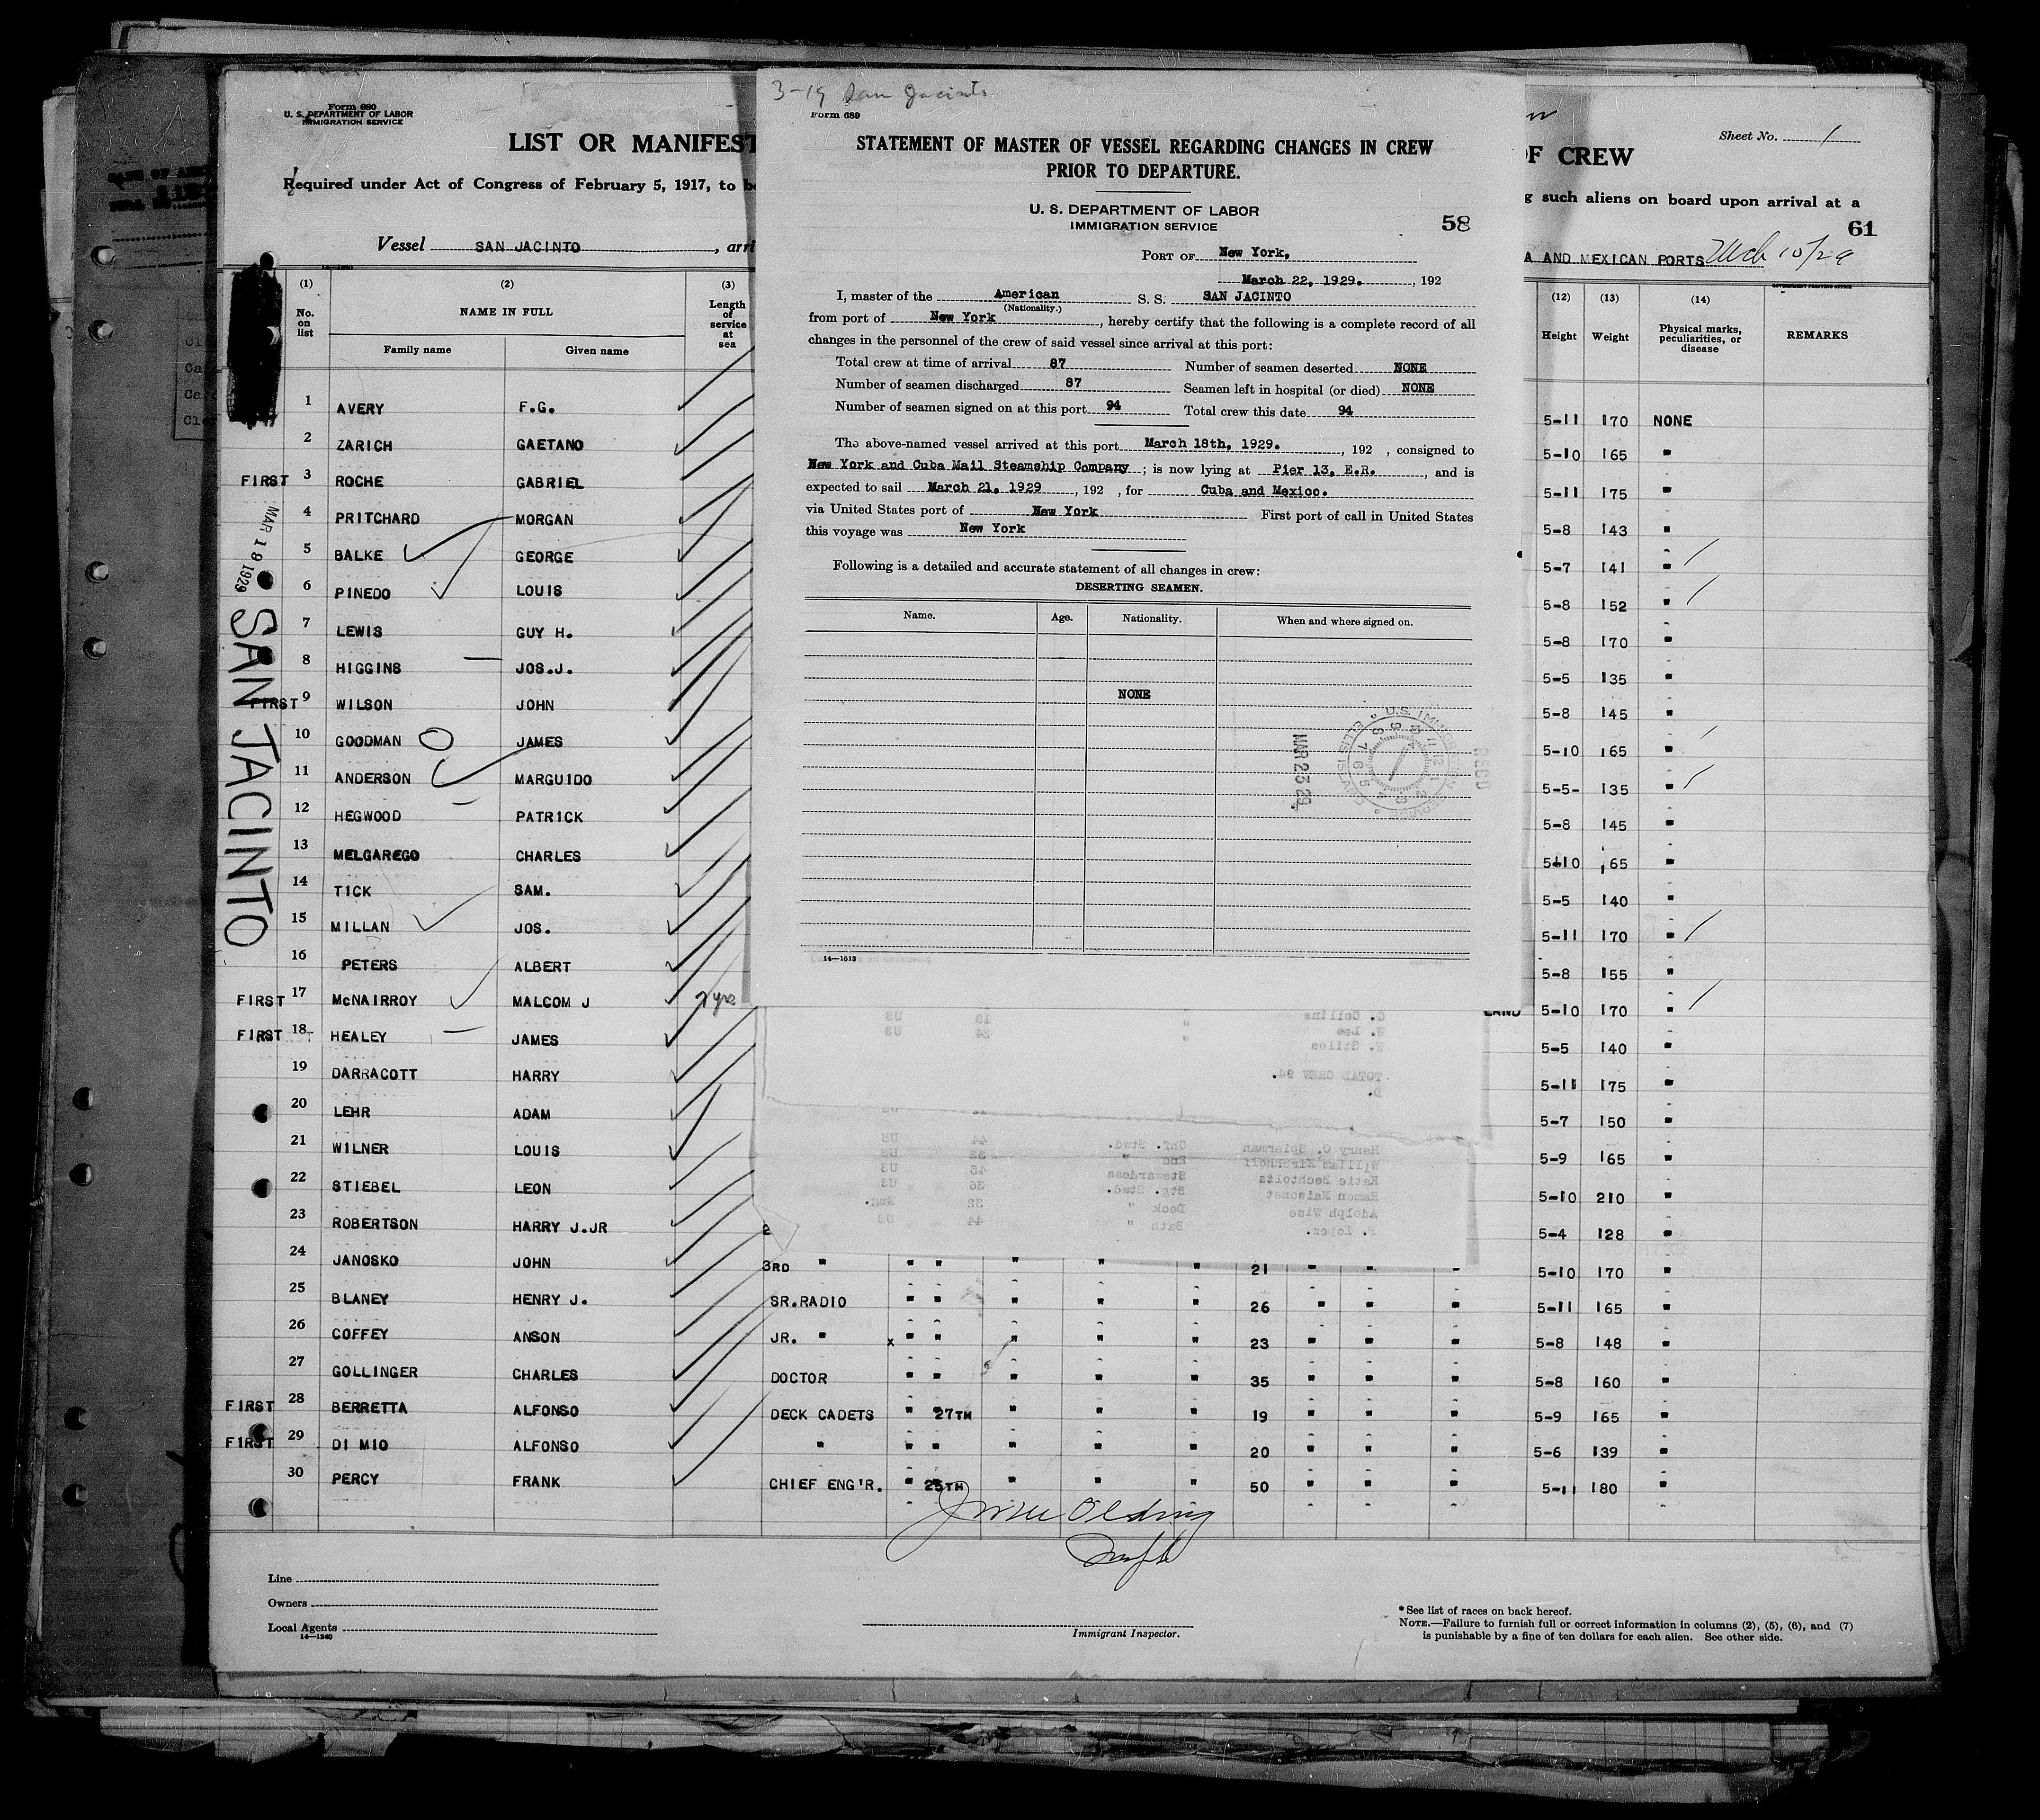 Form 680
U. S. DEPARTMENT OF LABOR
IMMIGRATION SERVICE
LIST OR MANIFEST
OF CREW
Sheet No. 1
Required under Act of Congress of February 5, 1917, to be
such aliens on board upon arrival at a
61
Vessel SAN JACINTO, arri
A AND MEXICAN PORTS Mch 10/29
(1) No. on list
(2) NAME IN FULL
Family name Given name
(3) Length of service at sea
(12) Height
(13) Weight
(14) Physical marks, peculiarities, or disease
REMARKS
1 AVERY F.G. 5-11 170 NONE
2 ZARICH GAETANO 5-10 165 "
FIRST 3 ROCHE GABRIEL 5-11 175 "
4 PRITCHARD MORGAN 5-8 143 "
5 BALKE GEORGE 5-7 141 "
6 PINEDO LOUIS 5-8 152 "
7 LEWIS GUY H. 5-8 170 "
8 HIGGINS JOS.J. 5-5 135 "
FIRST 9 WILSON JOHN 5-8 145 "
10 GOODMAN JAMES 5-10 165 "
11 ANDERSON MARGUIDO 5-5- 135 "
12 HEGWOOD PATRICK 5-8 145 "
13 MELGAREGO CHARLES 5-10 165 "
14 TICK SAM. 5-5 140 "
15 MILLAN JOS. 5-11 170 "
16 PETERS ALBERT 5-8 155 "
FIRST 17 McNAIRROY MALCOM J 7 yrs LAND 5-10 170 "
FIRST 18 HEALEY JAMES 5-5 140 "
19 DARRACOTT HARRY 5-11 175 "
20 LEHR ADAM 5-7 150 "
21 WILNER LOUIS 5-9 165 "
22 STIEBEL LEON 5-10 210 "
23 ROBERTSON HARRY J.JR 2 5-4 128 "
24 JANOSKO JOHN 3RD " " " " " " 21 " " " 5-10 170 "
25 BLANEY HENRY J. SR.RADIO " " " " " 26 " " " 5-11 165 "
26 COFFEY ANSON JR. " x " " " " " 23 " " " 5-8 148 "
27 GOLLINGER CHARLES DOCTOR " " " " " 35 " " " 5-8 160 "
FIRST 28 BERRETTA ALFONSO DECK CADETS " 27TH " " " 19 " " " 5-9 165 "
FIRST 29 DI MIO ALFONSO " " " " " " 20 " " " 5-6 139 "
30 PERCY FRANK CHIEF ENG'R. " 25TH " " " 50 " " " 5-11 180 "
MAR 19 1929
SAN JACINTO
Line
Owners
Local Agents
14—1240
Immigrant Inspector.
*See list of races on back hereof.
NOTE.—Failure to furnish full or correct information in columns (2), (5), (6), and (7)
is punishable by a fine of ten dollars for each alien. See other side.
3-19 San Jacinto
Form 689
STATEMENT OF MASTER OF VESSEL REGARDING CHANGES IN CREW
PRIOR TO DEPARTURE.
U. S. DEPARTMENT OF LABOR
IMMIGRATION SERVICE
58
PORT OF New York,
March 22, 1929. , 192
I, master of the American S. S. SAN JACINTO
(Nationality.)
from port of New York, hereby certify that the following is a complete record of all
changes in the personnel of the crew of said vessel since arrival at this port:
Total crew at time of arrival 87 Number of seamen deserted NONE
Number of seamen discharged 87 Seamen left in hospital (or died) NONE
Number of seamen signed on at this port 94 Total crew this date 94
The above-named vessel arrived at this port March 18th, 1929. , 192 , consigned to
New York and Cuba Mail Steamship Company; is now lying at Pier 13, E.R., and is
expected to sail March 21, 1929, 192 , for Cuba and Mexico.
via United States port of New York First port of call in United States
this voyage was New York
Following is a detailed and accurate statement of all changes in crew:
DESERTING SEAMEN.
Name. Age. Nationality. When and where signed on.
NONE
REC'D
U.S. IMMIGRATION SERVICE
MAR 23 29
14—1613
G. Collins " 18 US
W. Lee " 24 US
W. Stiles
TOTAL CREW 94.
Henry O. Spierman Chf. Stwd. 44 US
William Kirchhoff 2nd " US
Katie Bechtoltz Stewardess 45 US
Ramon Maisonet Stg. Stwd. 36 US
Adolph Wise Deck " 32 Eng.
P. Lopez. Bath " 44 US